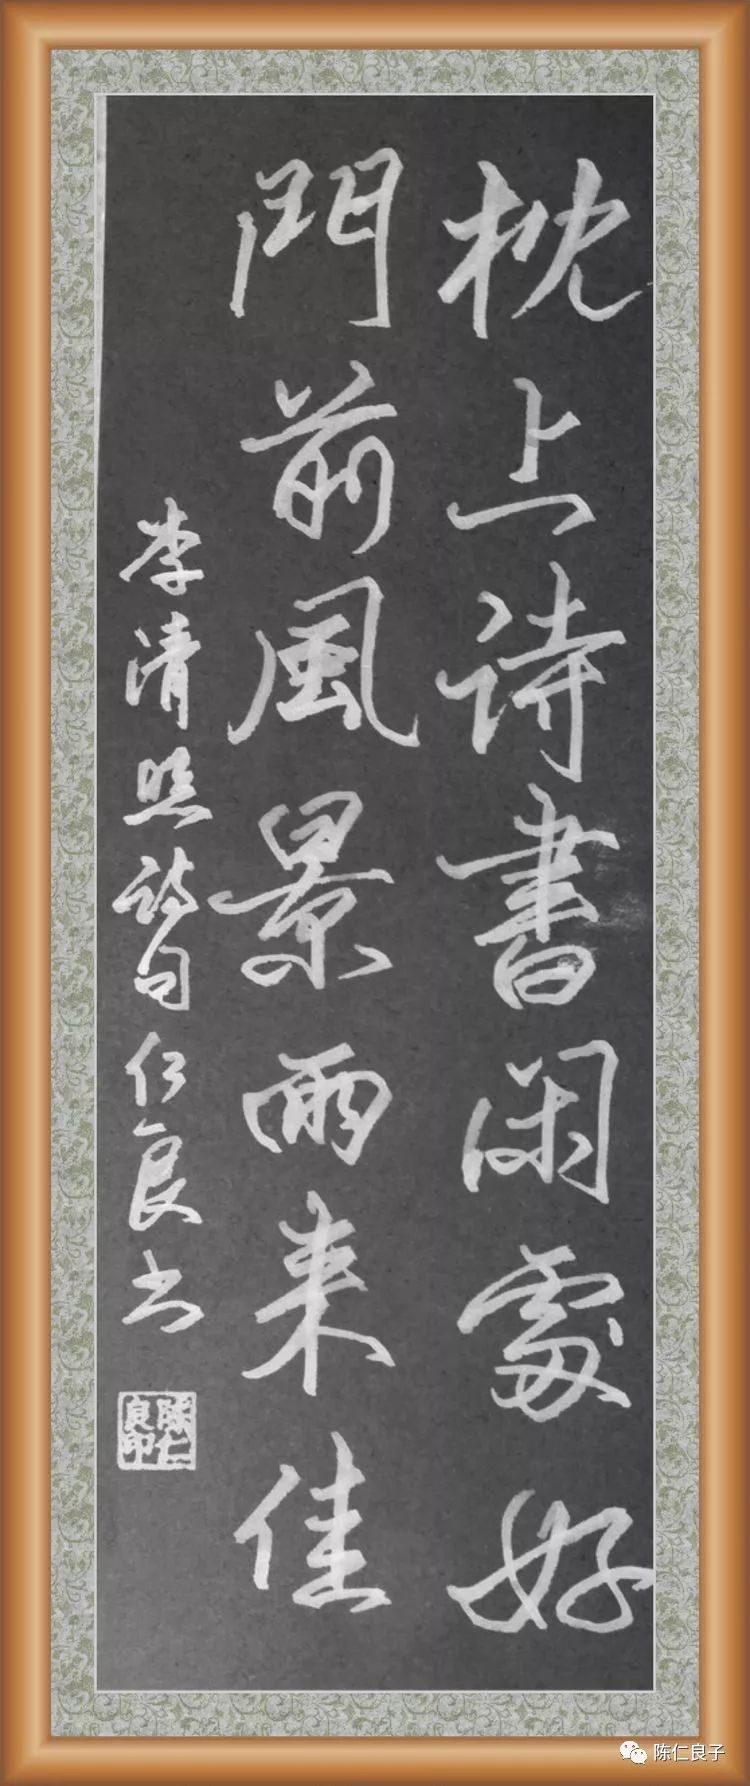 枕上詩書閑處好
門前風景雨来佳
李清照詩句 仁良书
陳仁良印
陈仁良子